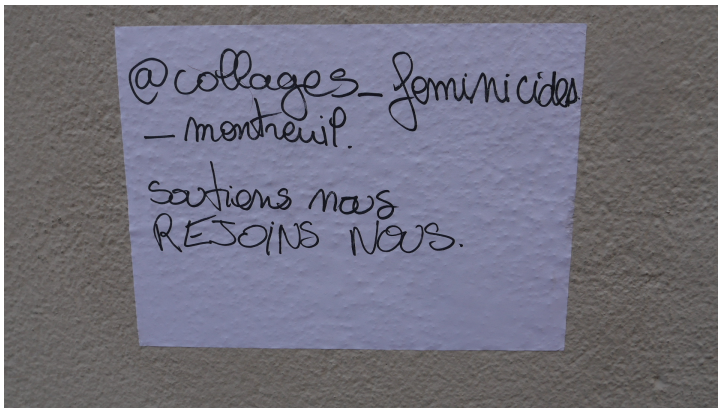 @collages_feminicides
_montreuil.
soutiens nous
REJOINS NOUS.